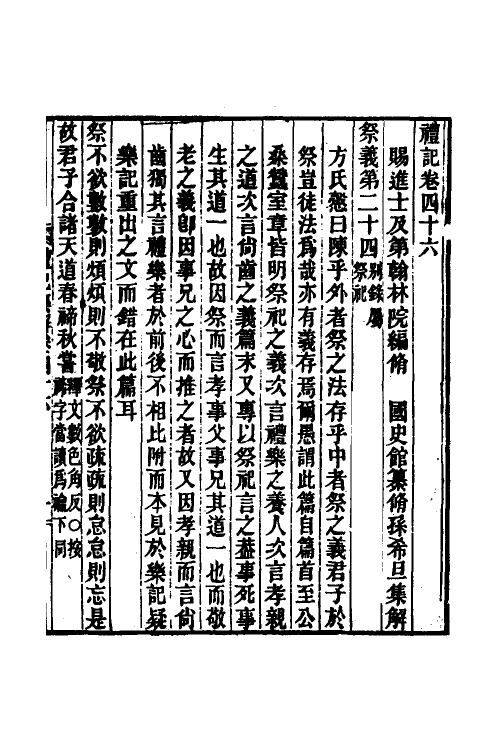 禮記卷四十六
賜進士及第翰林院編脩 國史館纂脩孫希旦集解
祭義第二十四別錄屬祭祀
方氏慤曰陳乎外者祭之法存乎中者祭之義君子於
祭豈徒法爲哉亦有義存焉爾愚謂此篇自篇首至公
桑蠶室章皆明祭祀之義次言禮樂之養人次言孝親
之道次言尙齒之義篇末又專以祭祀言之蓋事死事
生其道一也故因祭而言孝事父事兄其道一也而敬
老之義卽因事兄之心而推之者故又因孝親而言尙
齒獨其言禮樂者於前後不相比附而本見於樂記疑
樂記重出之文而錯在此篇耳
祭不欲數數則煩煩則不敬祭不欲疏疏則怠怠則忘是
故君子合諸天道春禘秋嘗釋文數色角反○按禘字當讀爲禴下同